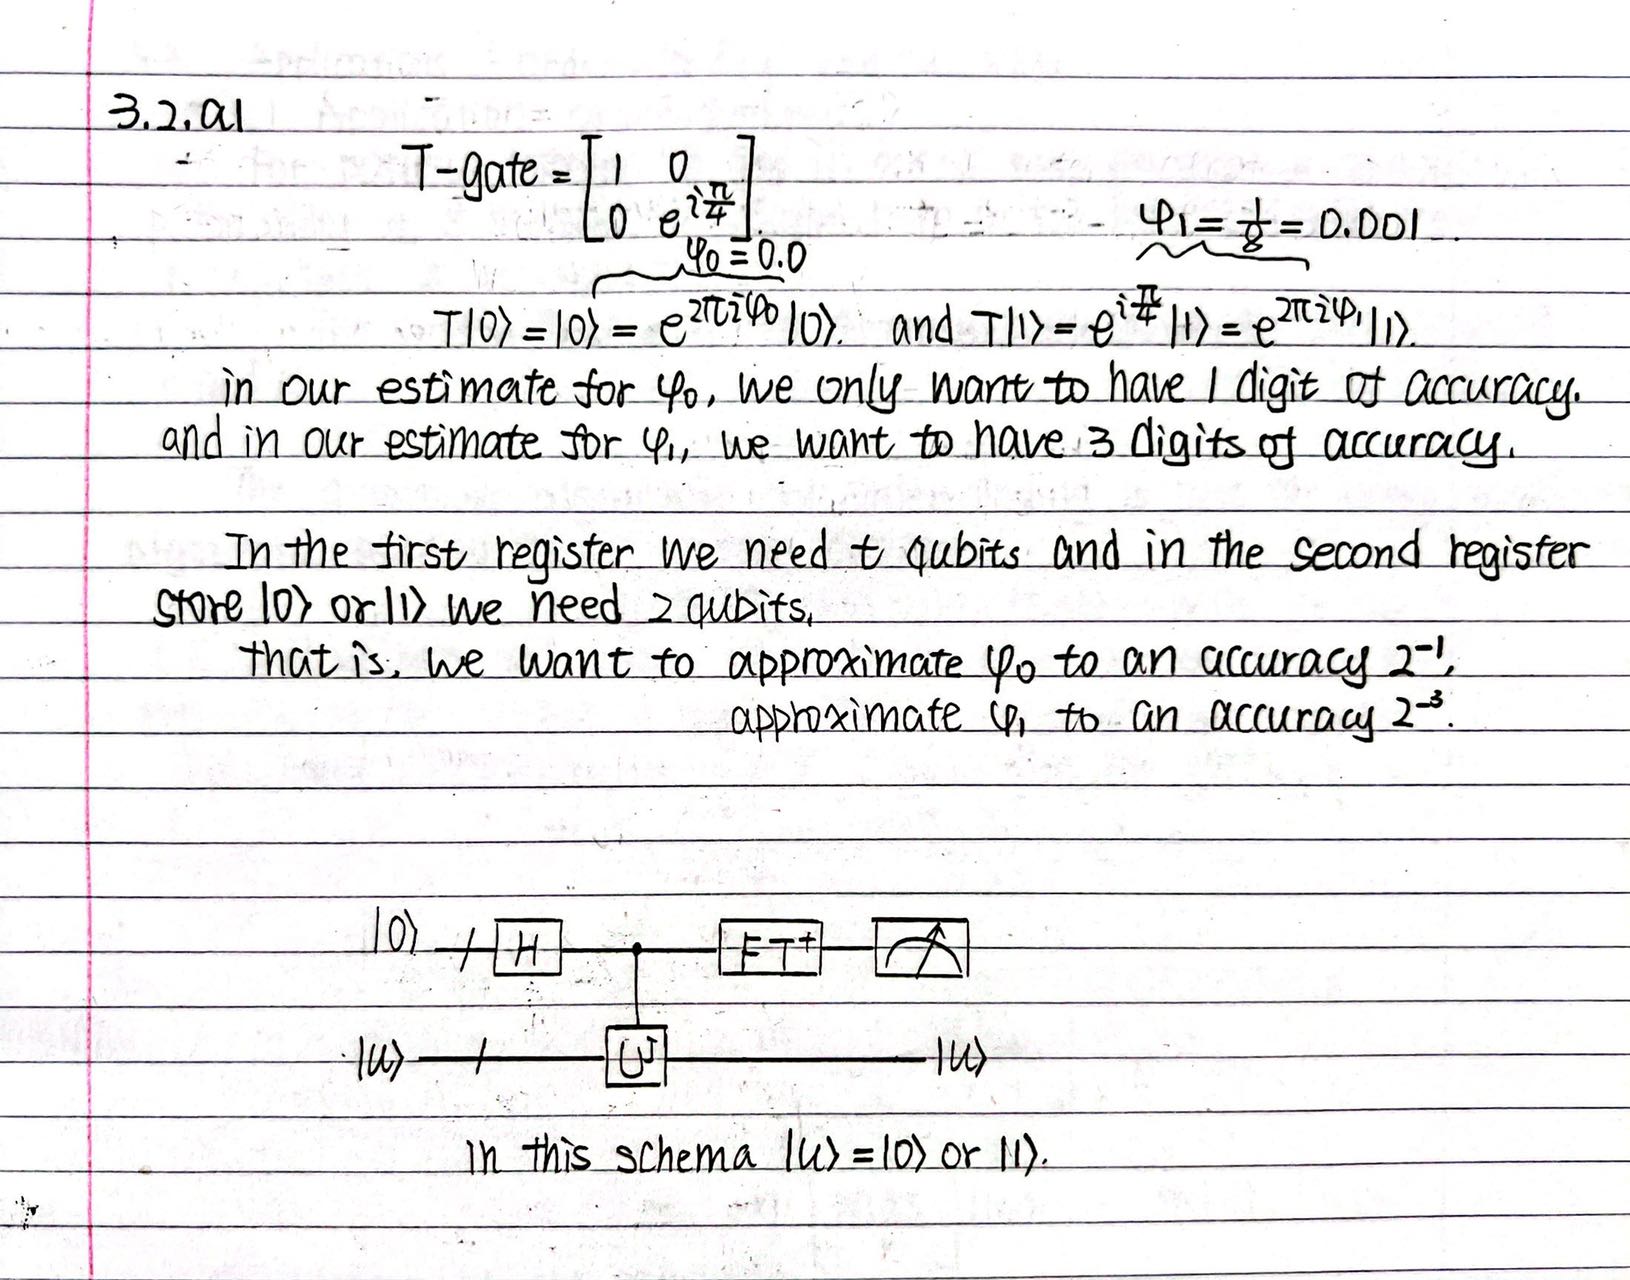 3.2.a1
T-gate = [1 0
0 e^{iπ/4}].
φ₀ = 0.0
φ₁ = 1/8 = 0.001.
T|0⟩ = |0⟩ = e^{2πiφ₀}|0⟩. and T|1⟩ = e^{iπ/4}|1⟩ = e^{2πiφ₁}|1⟩.
in our estimate for φ₀, we only want to have 1 digit of accuracy.
and in our estimate for φ₁, we want to have 3 digits of accuracy.
In the first register we need t qubits and in the second register
store |0⟩ or |1⟩ we need 2 qubits,
that is, we want to approximate φ₀ to an accuracy 2⁻¹,
approximate φ₁ to an accuracy 2⁻³.
|0⟩ H FT† 
|u⟩ Uʲ |u⟩
in this schema |u⟩ = |0⟩ or |1⟩.